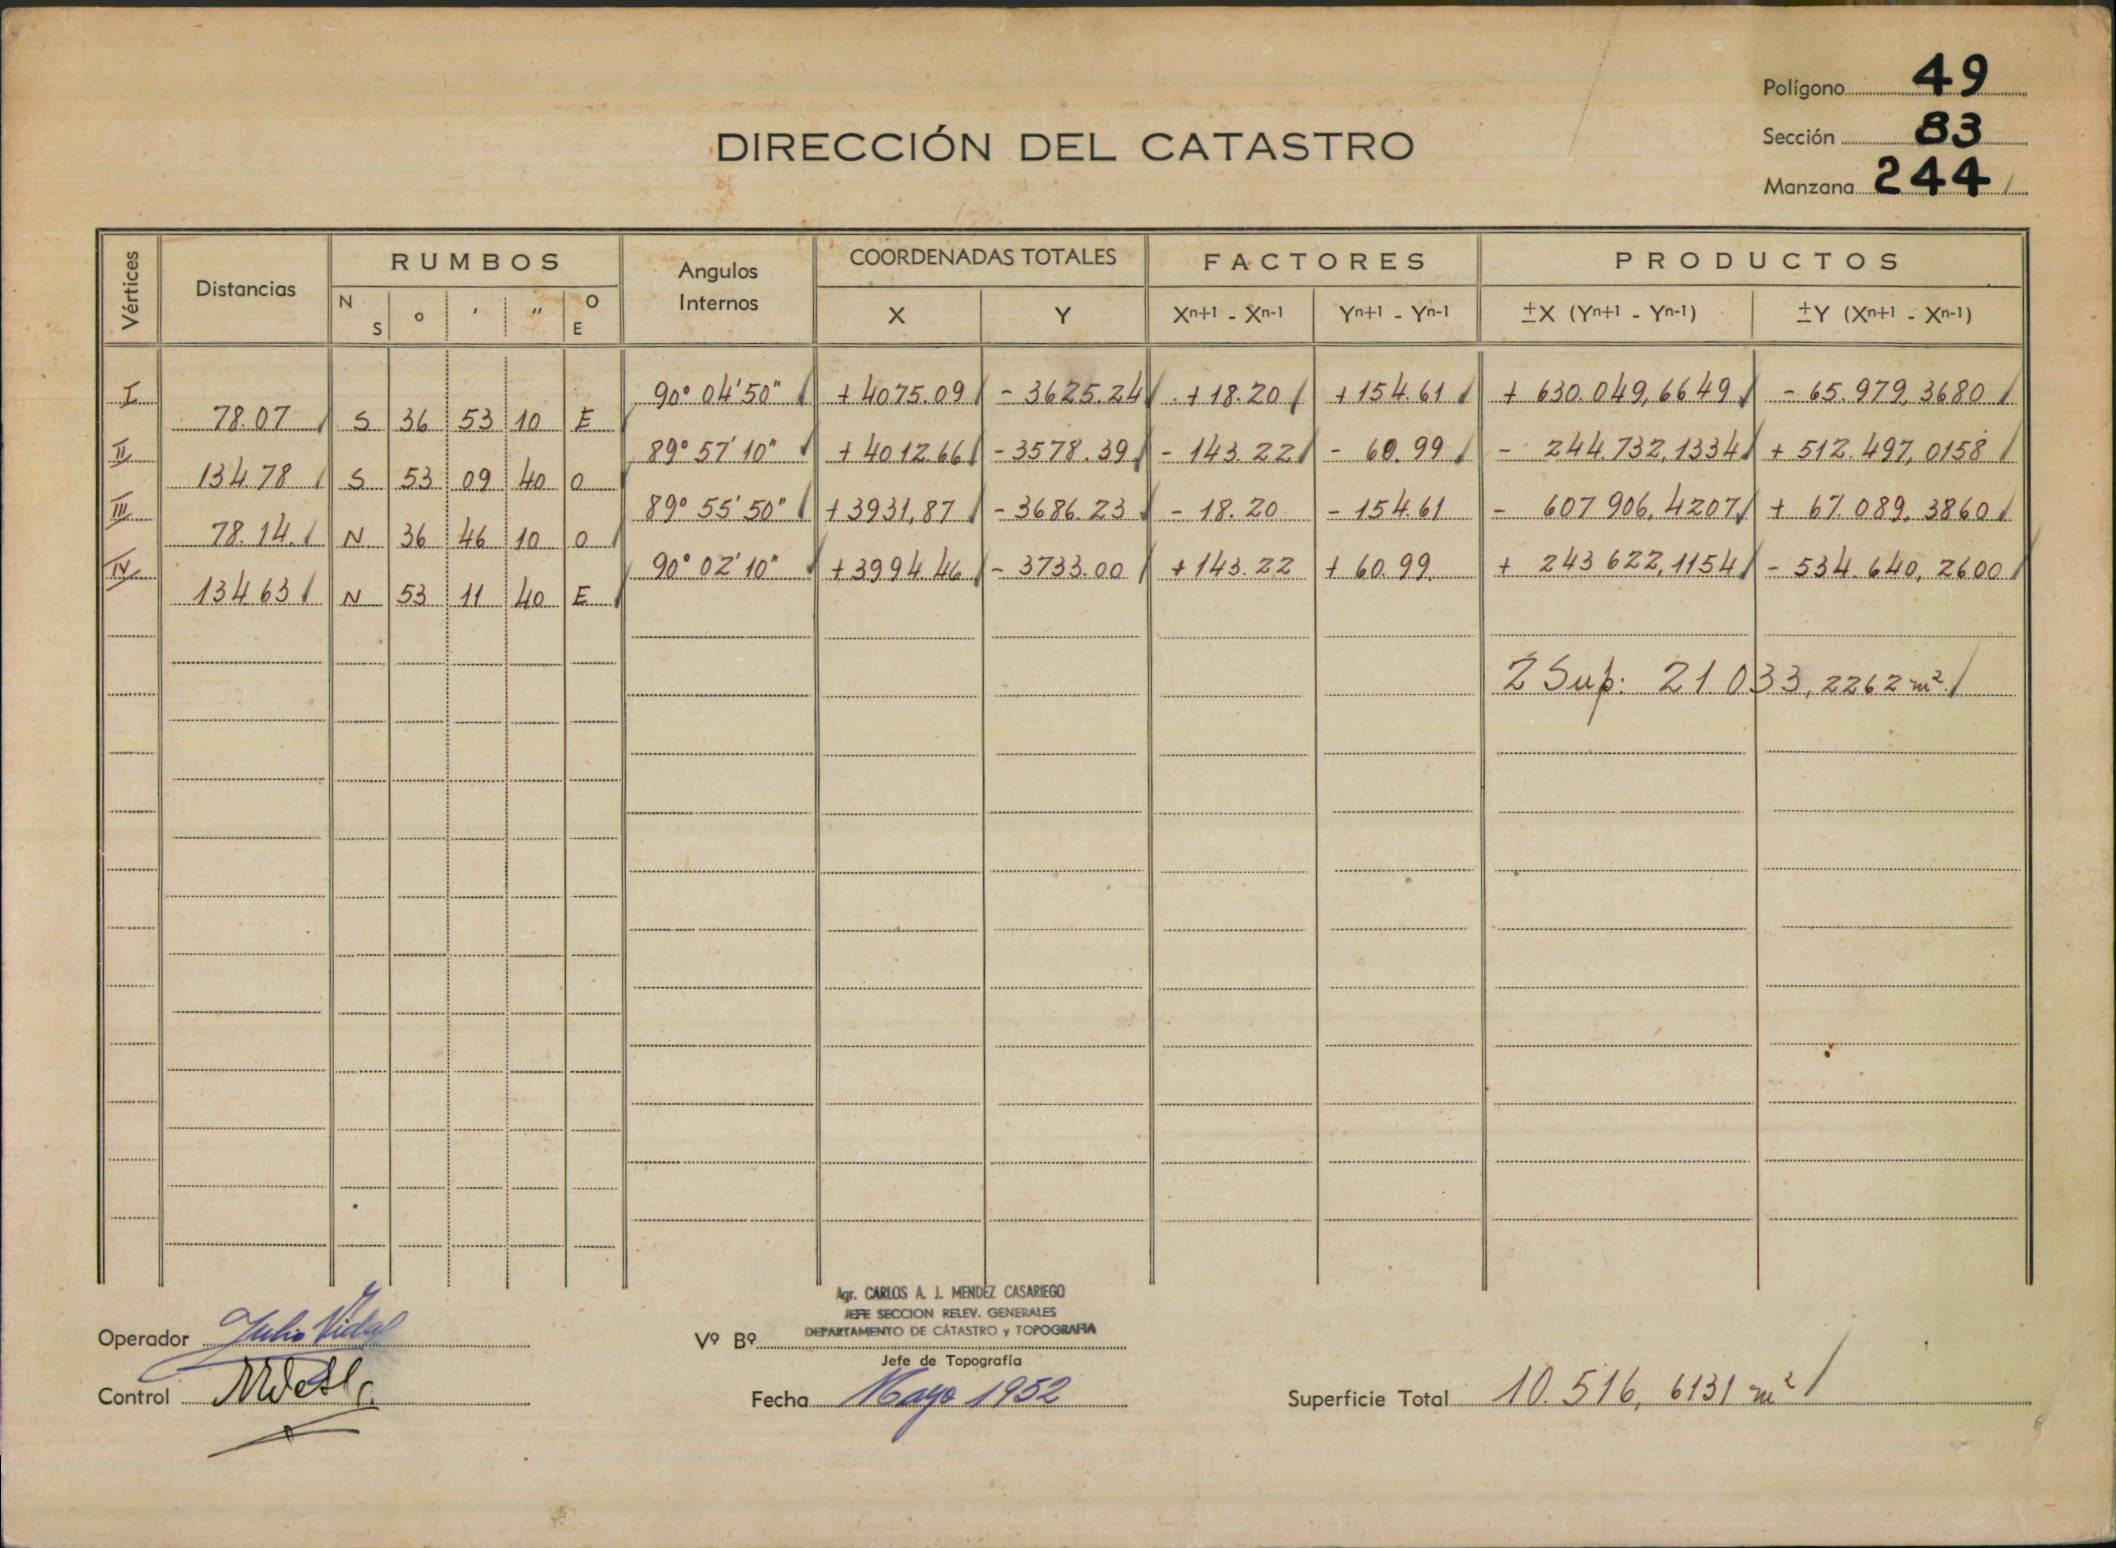 Polígono 49
Sección 83
Manzana 244
DIRECCIÓN DEL CATASTRO
Vértices Distancias RUMBOS Angulos Internos COORDENADAS TOTALES FACTORES PRODUCTOS
N S o ' " O E X Y Xn+1 - Xn-1 Yn+1 - Yn-1 ±X (Yn+1 - Yn-1) ±Y (Xn+1 - Xn-1)
I 90° 04' 50" + 4075.09 - 3625.24 + 18.20 + 154.61 + 630.049,6649 - 65.979,3680
78.07 S 36 53 10 E
II 89° 57' 10" + 4012.66 - 3578.39 - 143.22 - 60.99 - 244.732,1334 + 512.497,0158
134.78 S 53 09 40 O
III 89° 55' 50" + 3931,87 - 3686.23 - 18.20 - 154.61 - 607 906,4207 + 67.089,3860
78.14. N 36 46 10 O
IV 90° 02' 10" + 3994.46 - 3733.00 + 143.22 + 60.99. + 243 622,1154 - 534.640,2600
134.63 N 53 11 40 E
2 Sup: 21.033,2262 m²
Agr. CARLOS A. J. MENDEZ CASARIEGO
JEFE SECCION RELEV. GENERALES
DEPARTAMENTO DE CATASTRO y TOPOGRAFIA
Operador Julio Vidal Vº Bº
Jefe de Topografía
Control Fecha Mayo 1952 Superficie Total 10.516,6131 m²